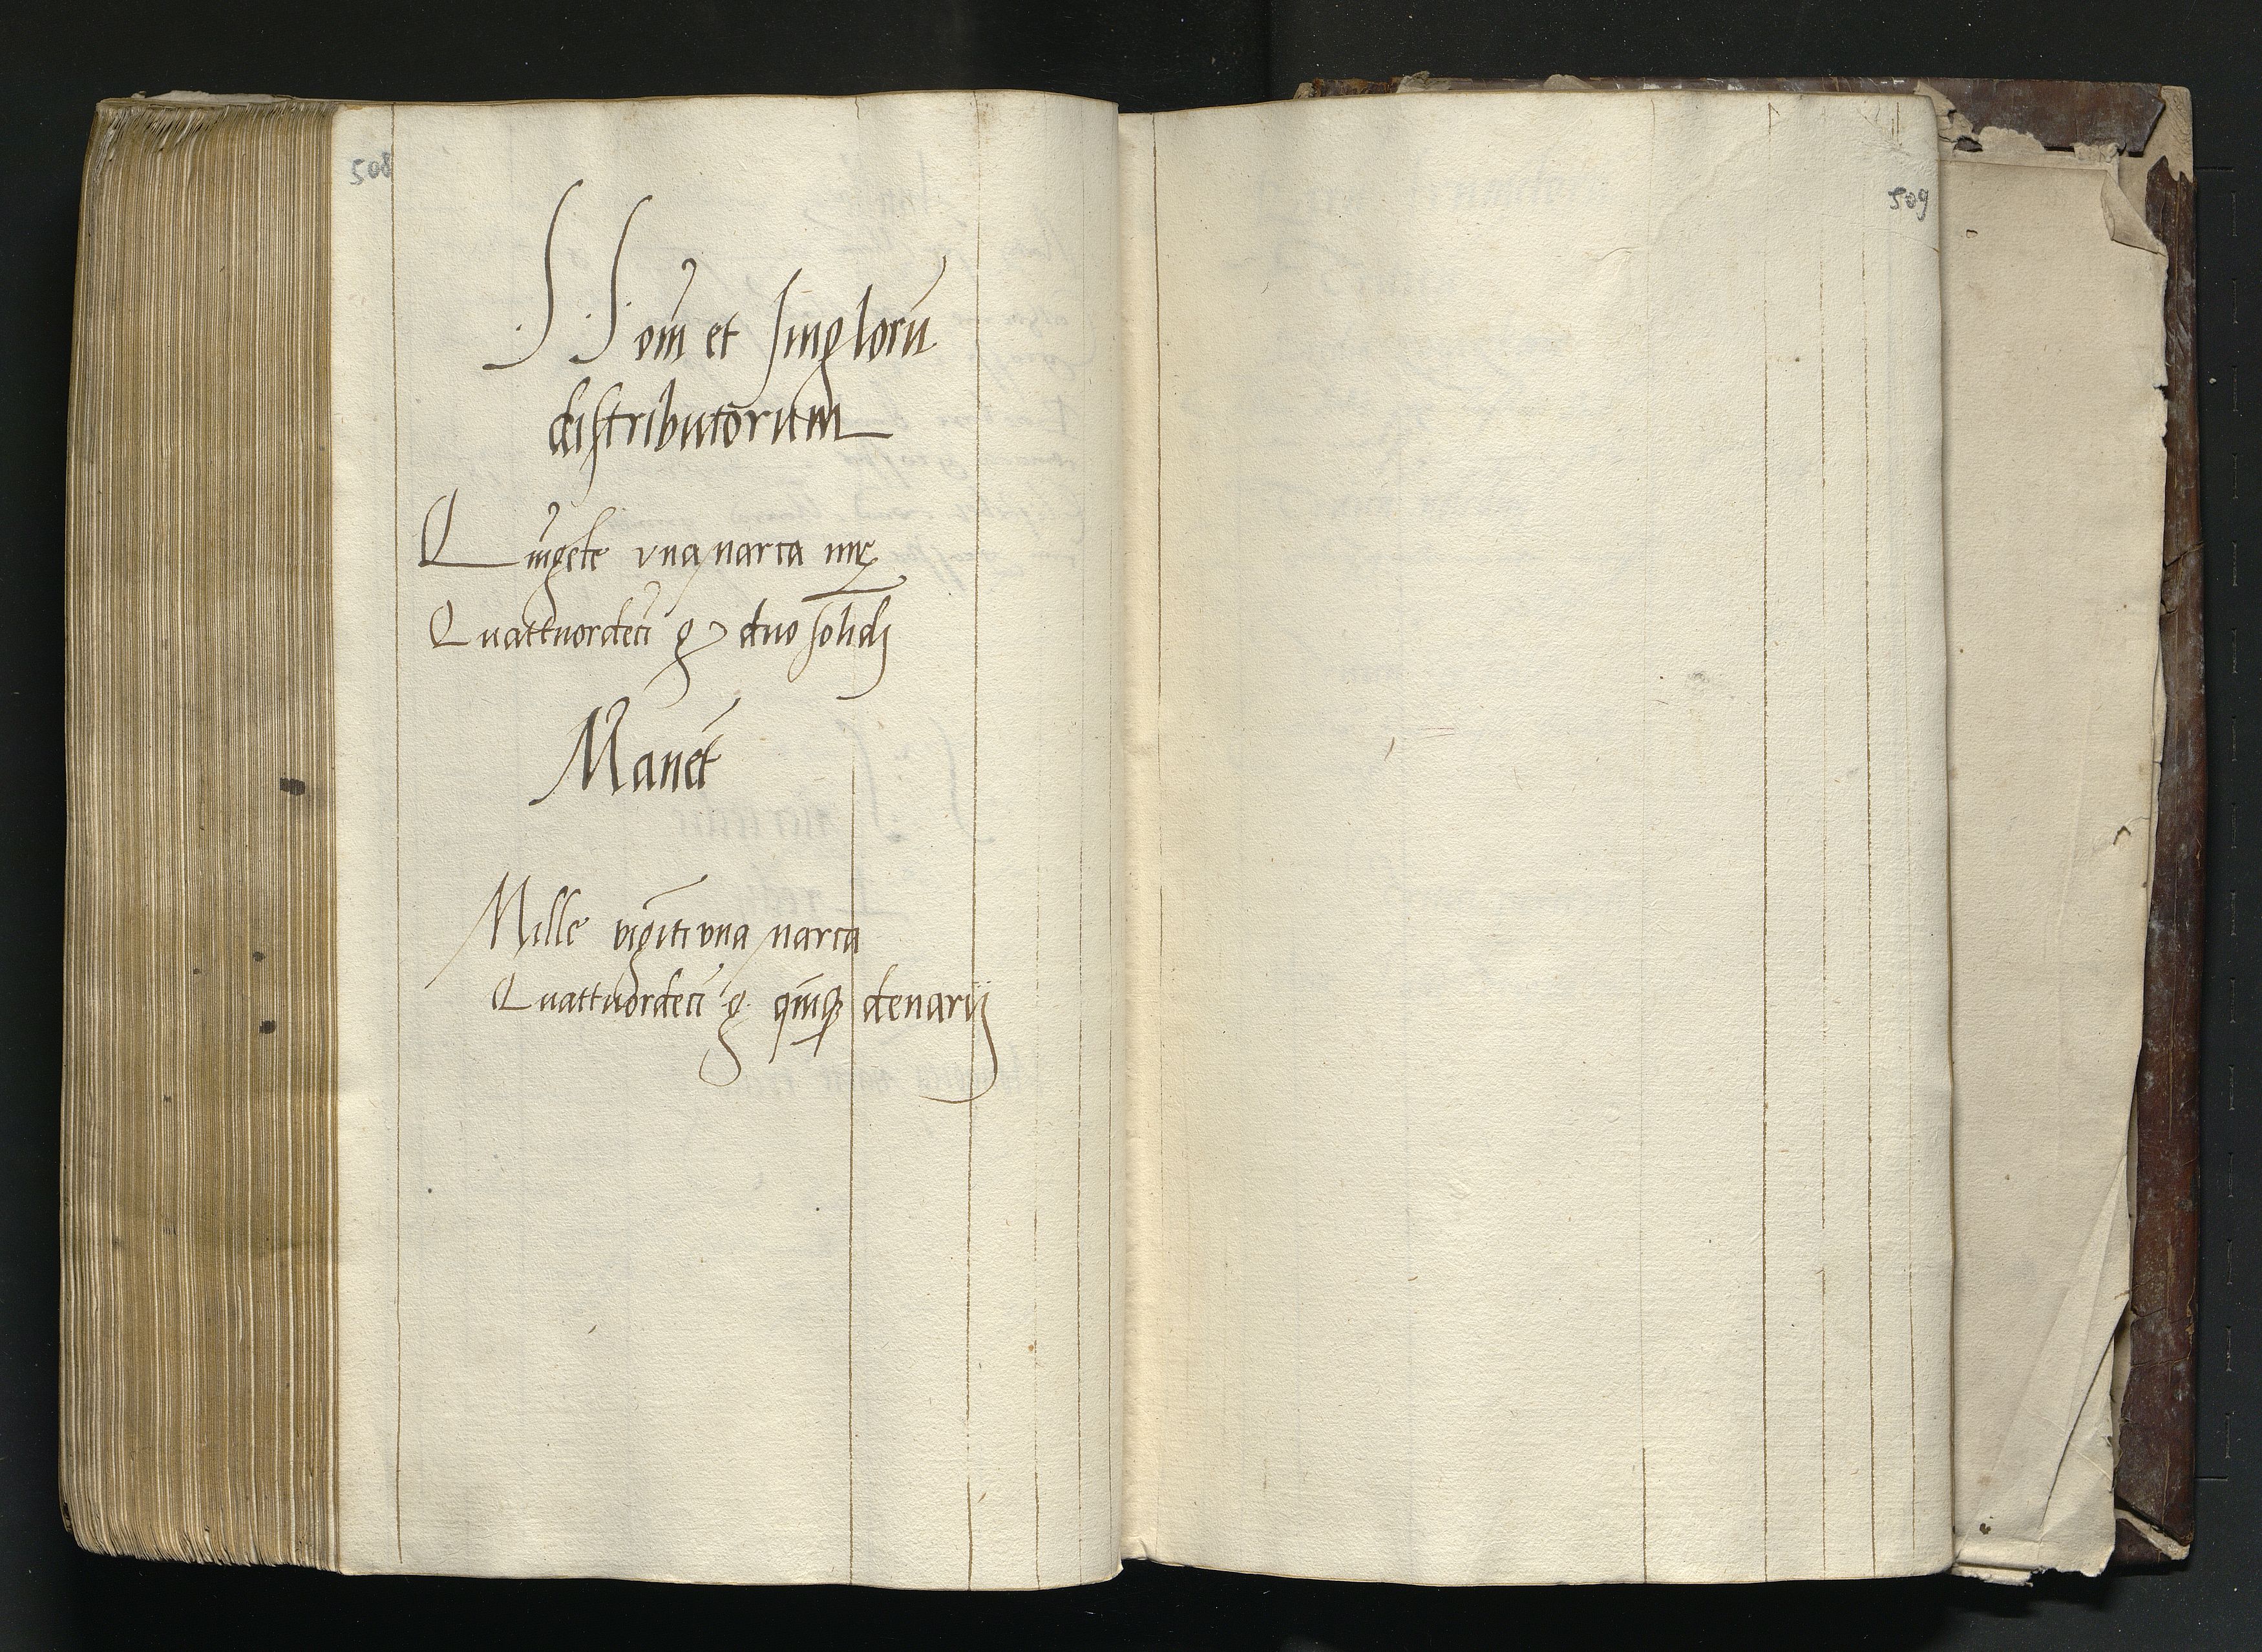 508
SS om̄ et singlorū
distributorum
Quīgēte vna marca
Quattuordecī g duo solidj
Manēt
Mille vigīti vna marca
Quattuordecī g. quīqʒ denarij
509